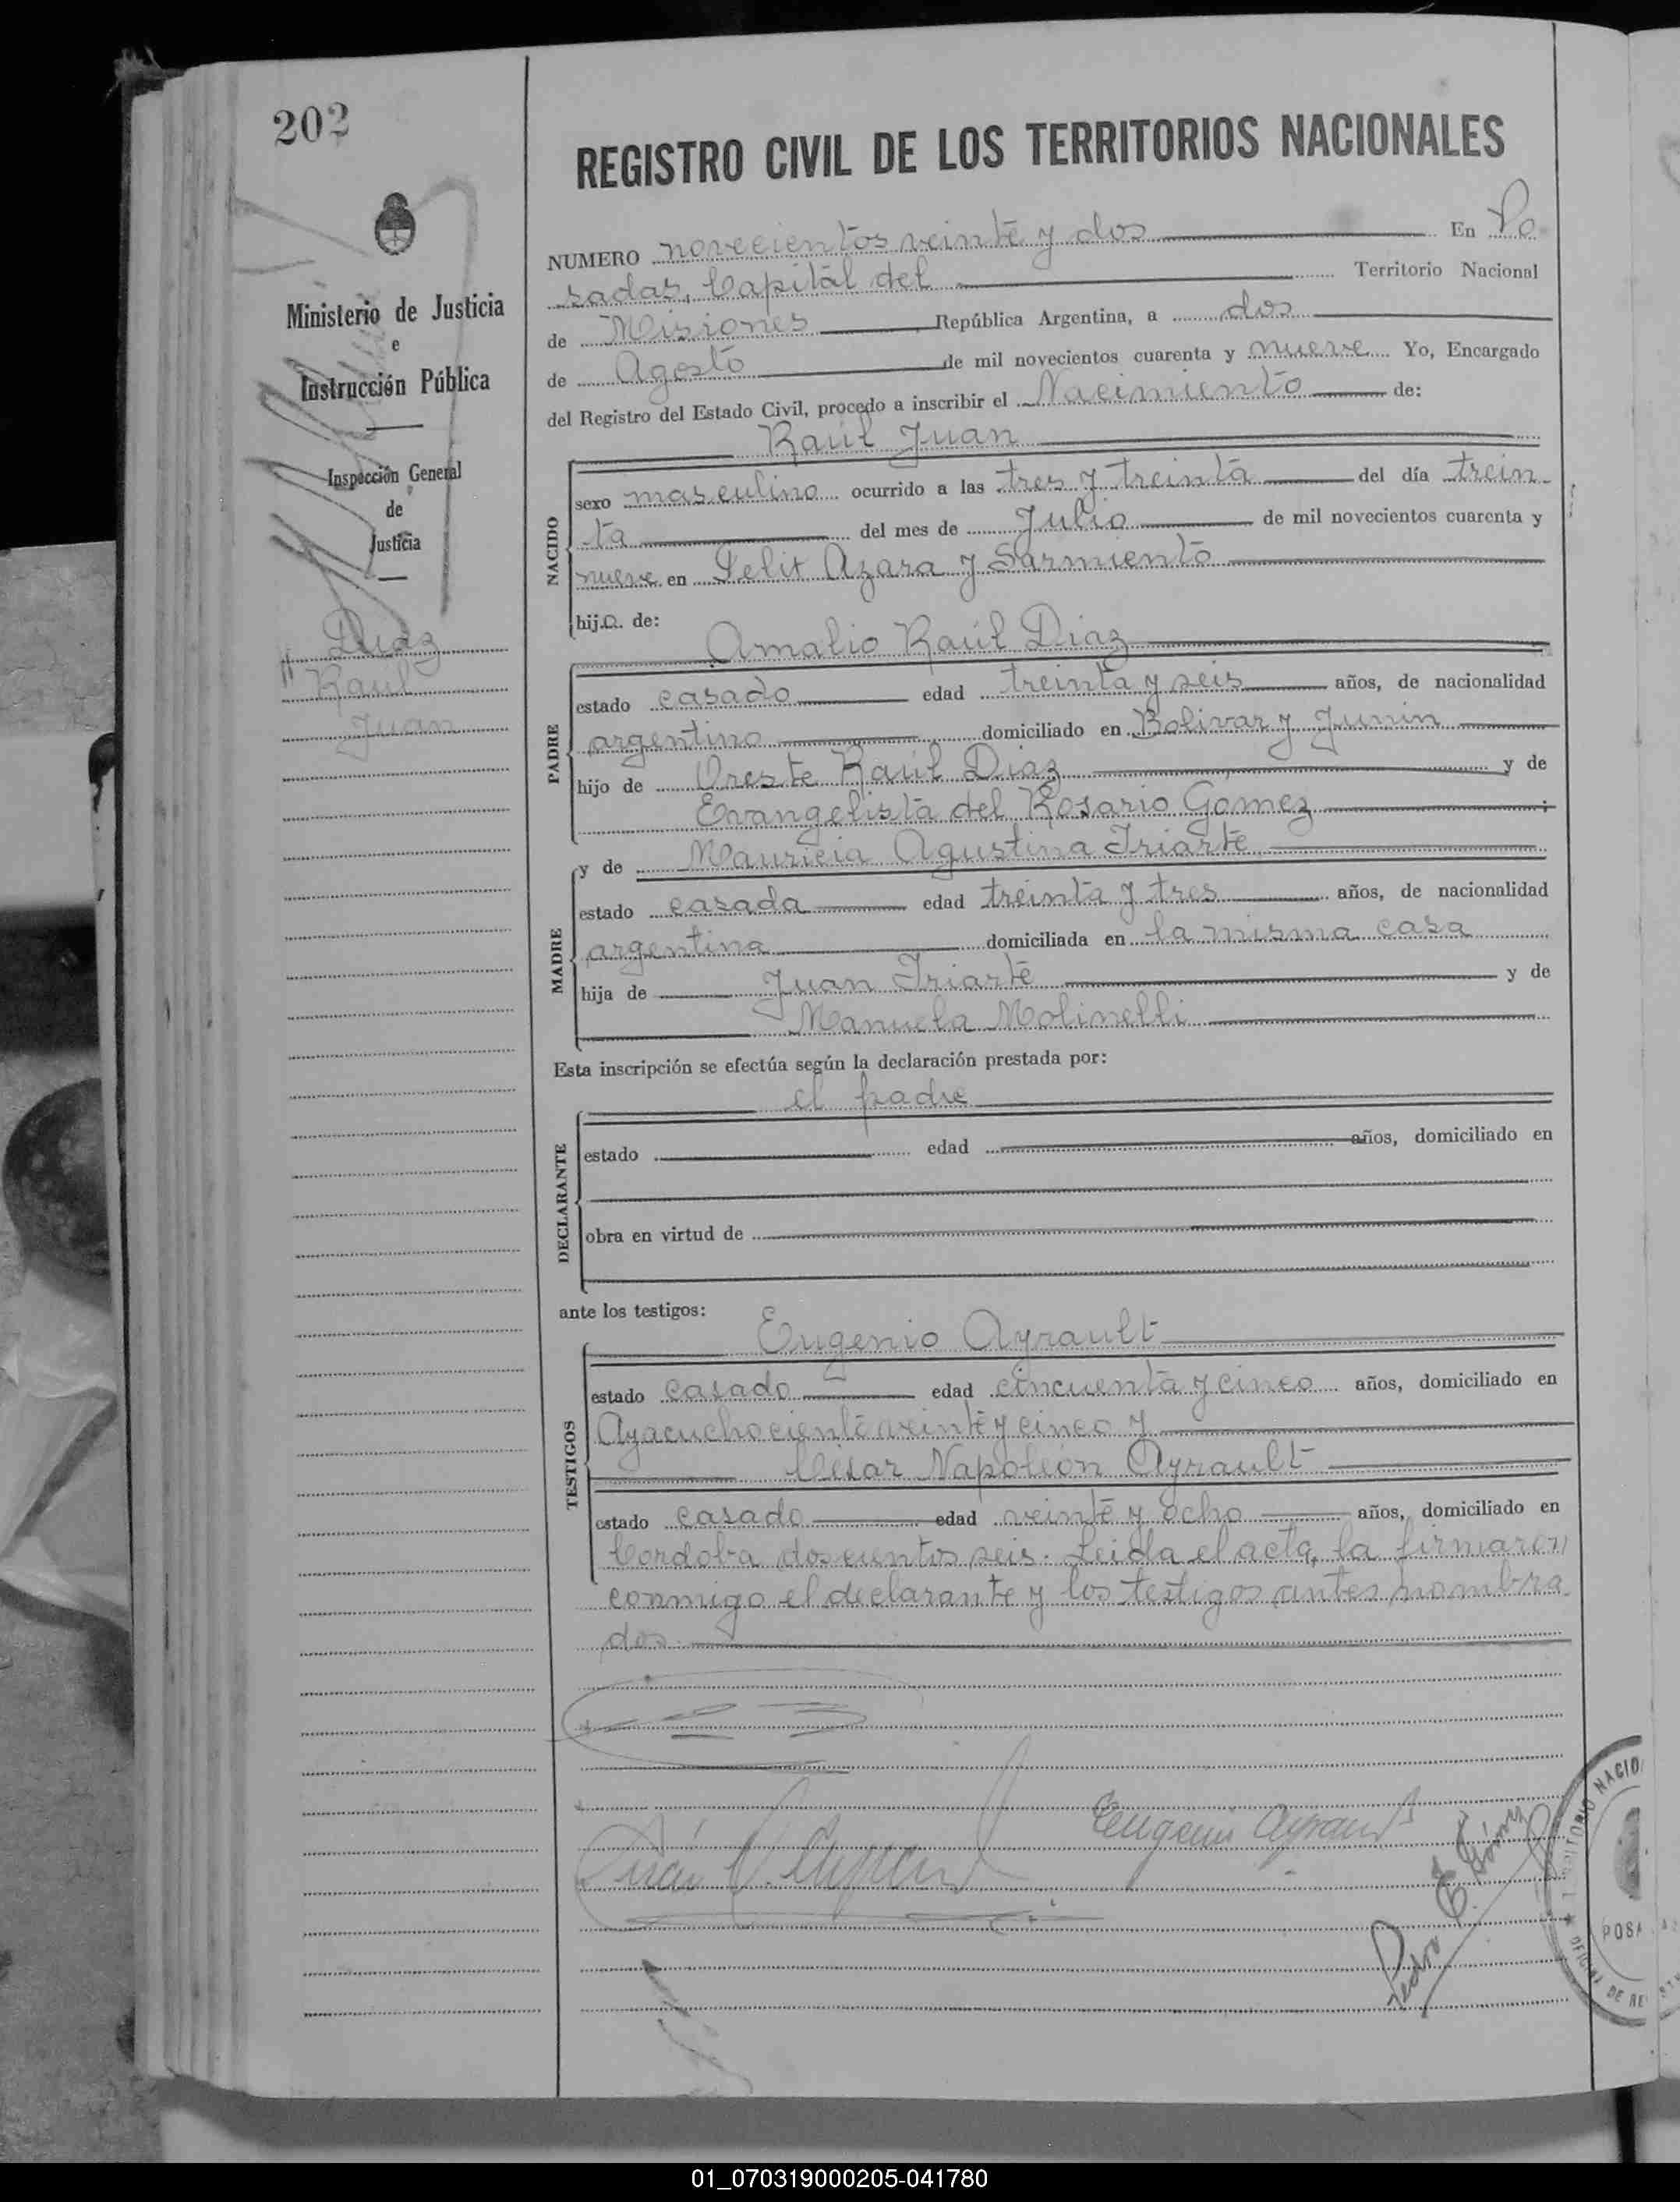 202
REGISTRO CIVIL DE LOS TERRITORIOS NACIONALES
Ministerio de Justicia
e
Instrucción Pública
Inspección General
de
Justicia
Diaz
Raul
Juan
NUMERO novecientos veinte y dos En Po
sadas, Capital del Territorio Nacional
de Misiones República Argentina, a dos
de Agosto de mil novecientos cuarenta y nueve Yo, Encargado
del Registro del Estado Civil, procedo a inscribir el Nacimiento de:
Raúl Juan
NACIDO
sexo masculino ocurrido a las tres y treinta del día trein
ta del mes de Julio de mil novecientos cuarenta y
nueve en Felix Azara y Sarmiento
hijo de:
Amalio Raúl Diaz
PADRE
estado casado edad treinta y seis años, de nacionalidad
argentino domiciliado en Bolivar y Junin
hijo de Oreste Raúl Diaz y de
Evangelista del Rosario Gomez
y de Mauricia Agustina Iriarte
MADRE
estado casada edad treinta y tres años, de nacionalidad
argentina domiciliada en la misma casa
hija de Juan Iriarte y de
Manuela Molinelli
Esta inscripción se efectúa según la declaración prestada por:
el padre
DECLARANTE
estado edad años, domiciliado en
obra en virtud de
ante los testigos:
Eugenio Ayrault
TESTIGOS
estado casado edad cincuenta y cinco años, domiciliado en
Ayacucho ciento veinte y cinco y
César Napoleón Ayrault
estado casado edad veinte y ocho años, domiciliado en
Cordoba doscientos seis. Leida el acta, la firmaron
conmigo el declarante y los testigos antes nombra
dos.
Eugenio Ayrault
Pedro E. Gómez
POSA
01_070319000205-041780